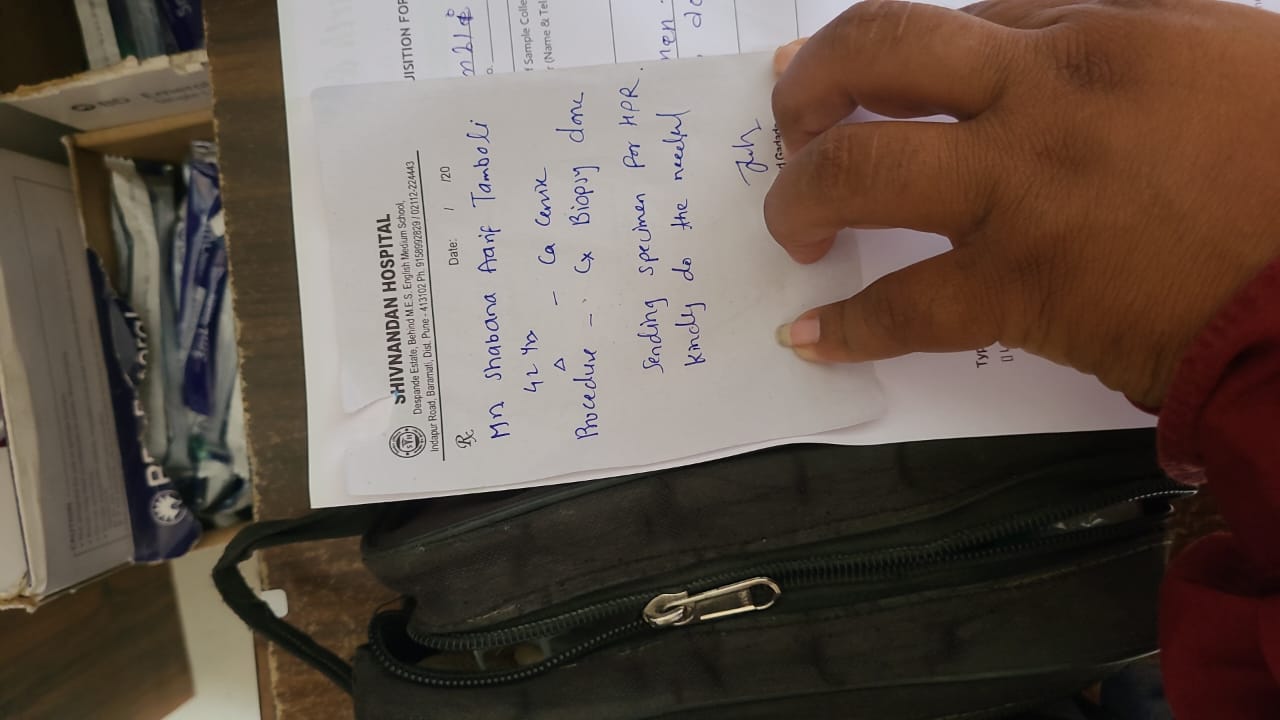 SHIVNANDAN HOSPITAL
Despande Estate, Behind M.E.S. English Medium School,
Indapur Road, Baramati, Dist. Pune - 413102 Ph. 9158992829 / 02112-224443
Rx
Date: / /20
Mrs Shabana Aarif Tamboli
42 yrs
Δ - Ca Cervix
Procedure - Cx Biopsy done
Sending specimen for HPR.
kindly do the needful
UISITION FOR
f Sample Colle
(Name & Tel
BD Emerald